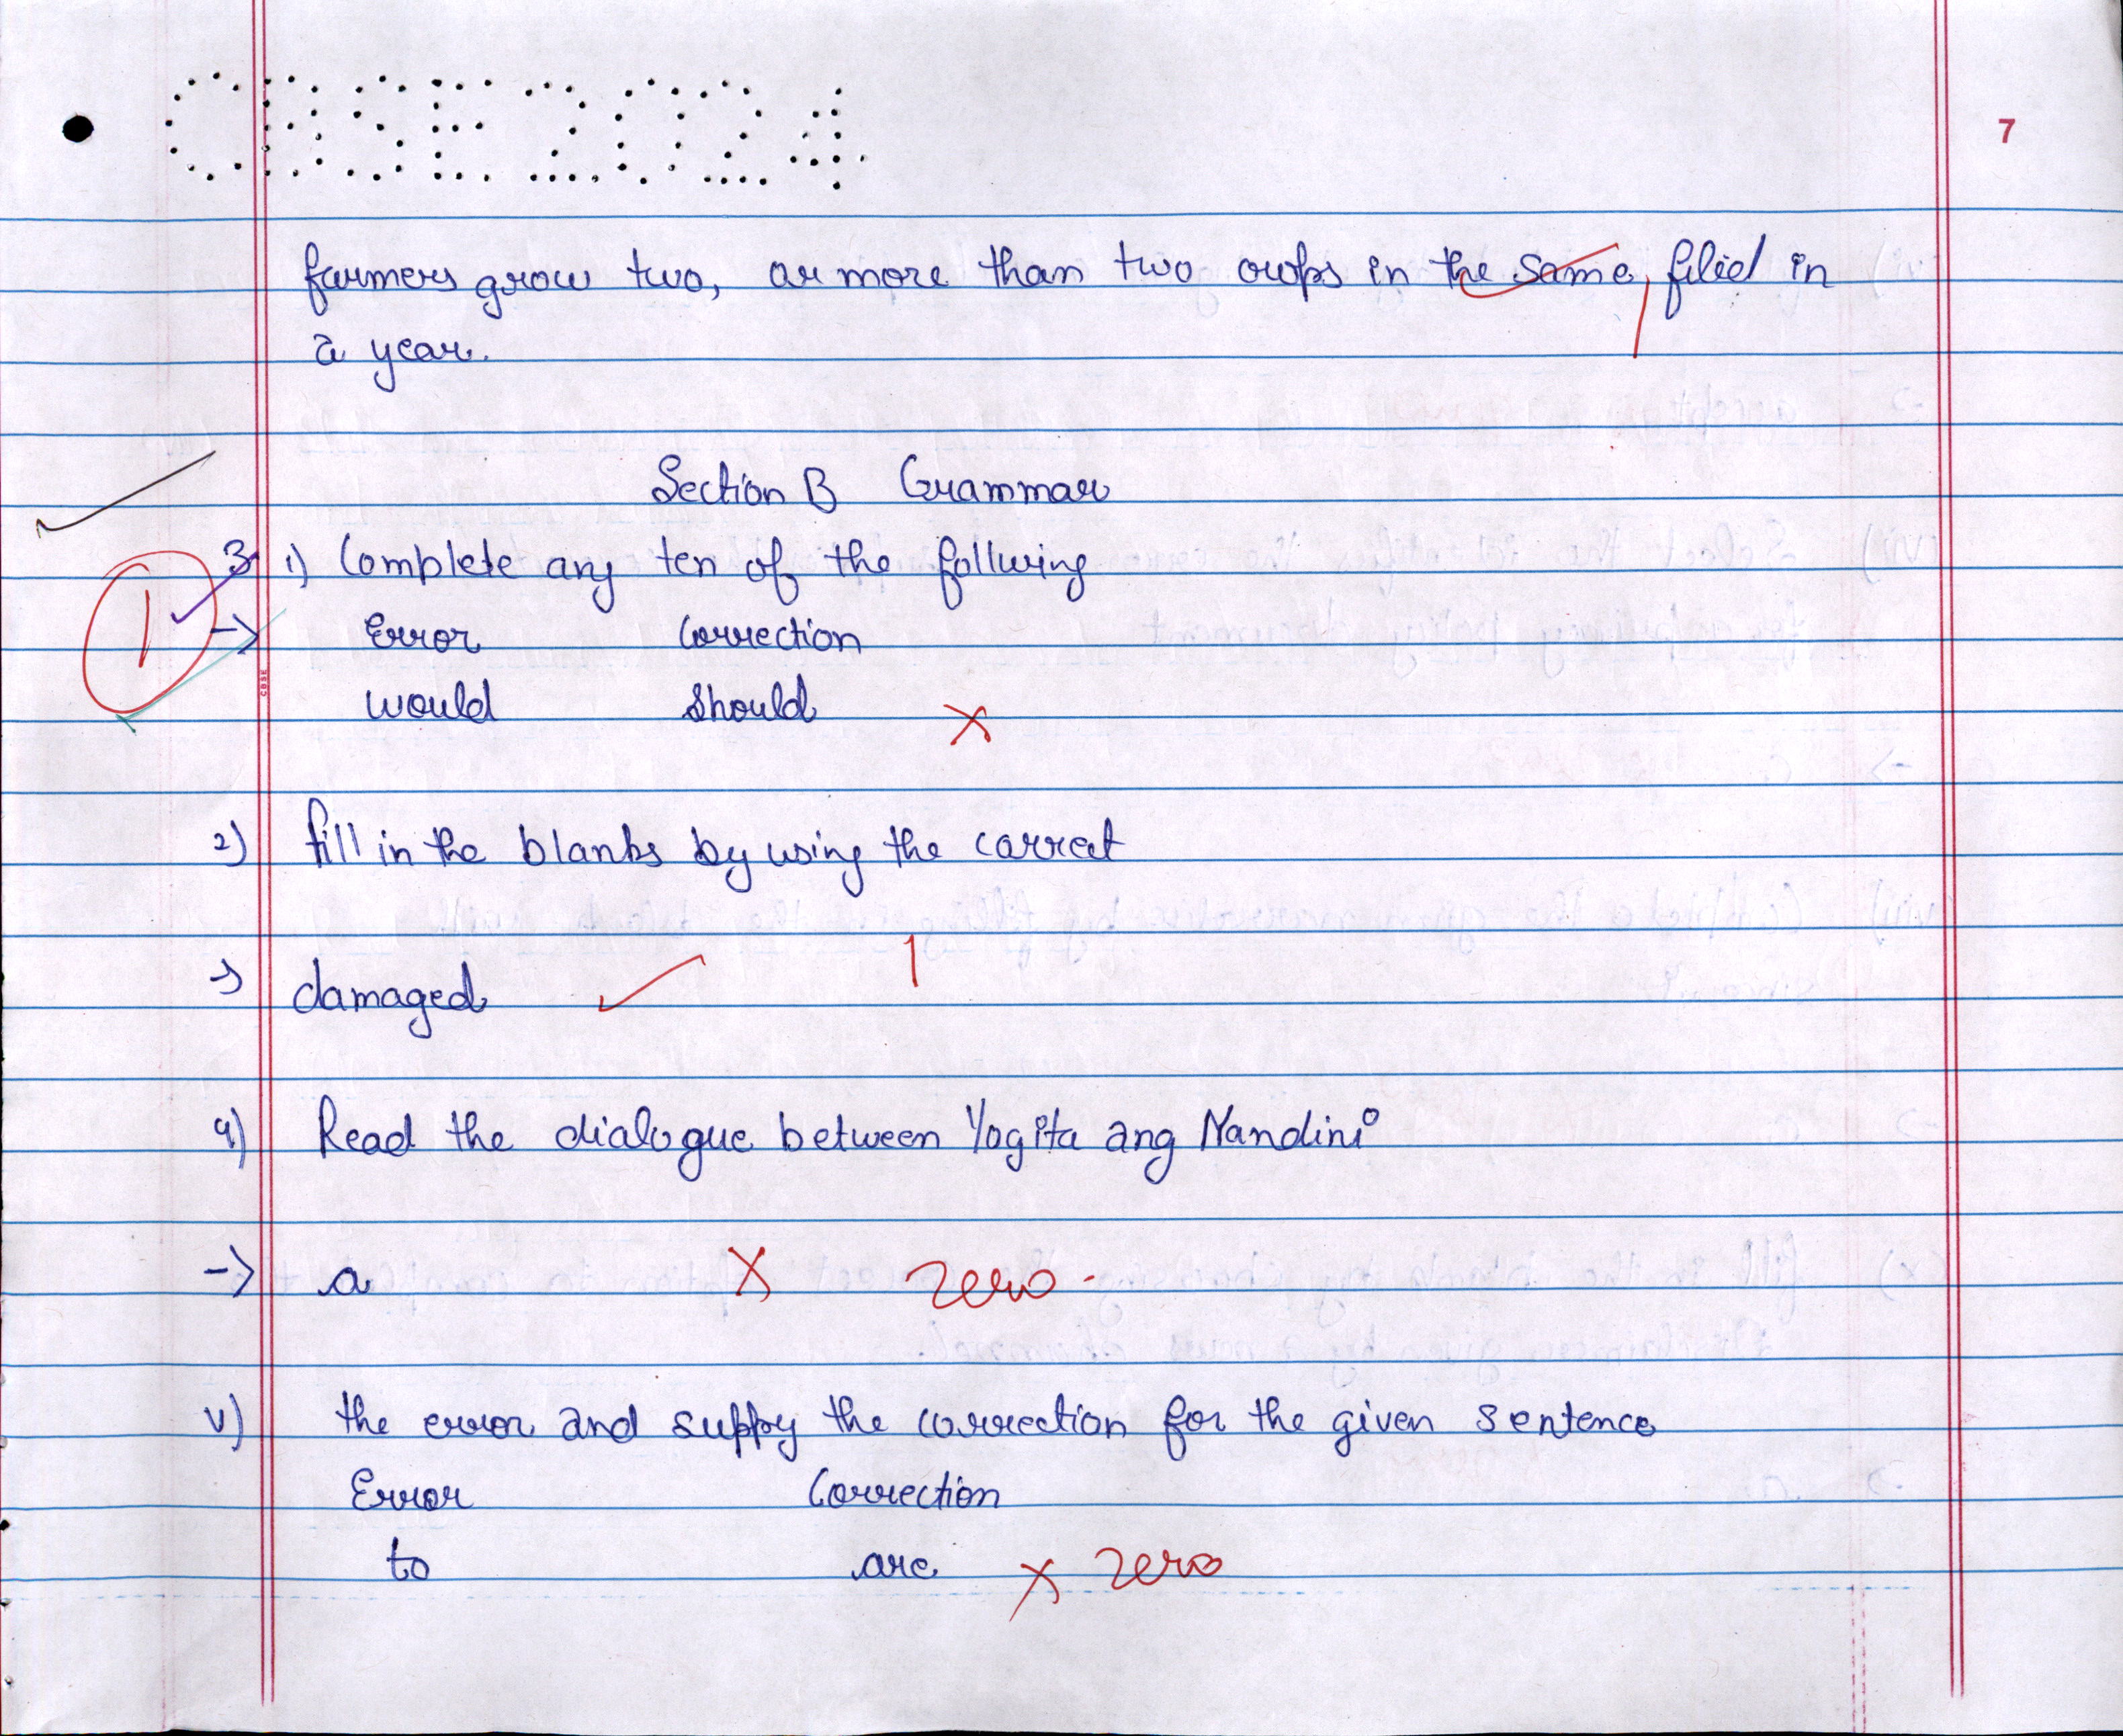 CBSE 2024
7
farmers grow two, or more than two crops in the same filed in
a year.
Section B Grammar
3 i) Complete any ten of the follwing
1
-> Error Correction
CBSE
would should X
2) fill in the blanks by using the correct
-> damaged ✓ 1
4) Read the dialogue between Yogita ang Nandini
-> a X zero.
v) the error and supply the correction for the given sentence
Error Correction
to are X zero